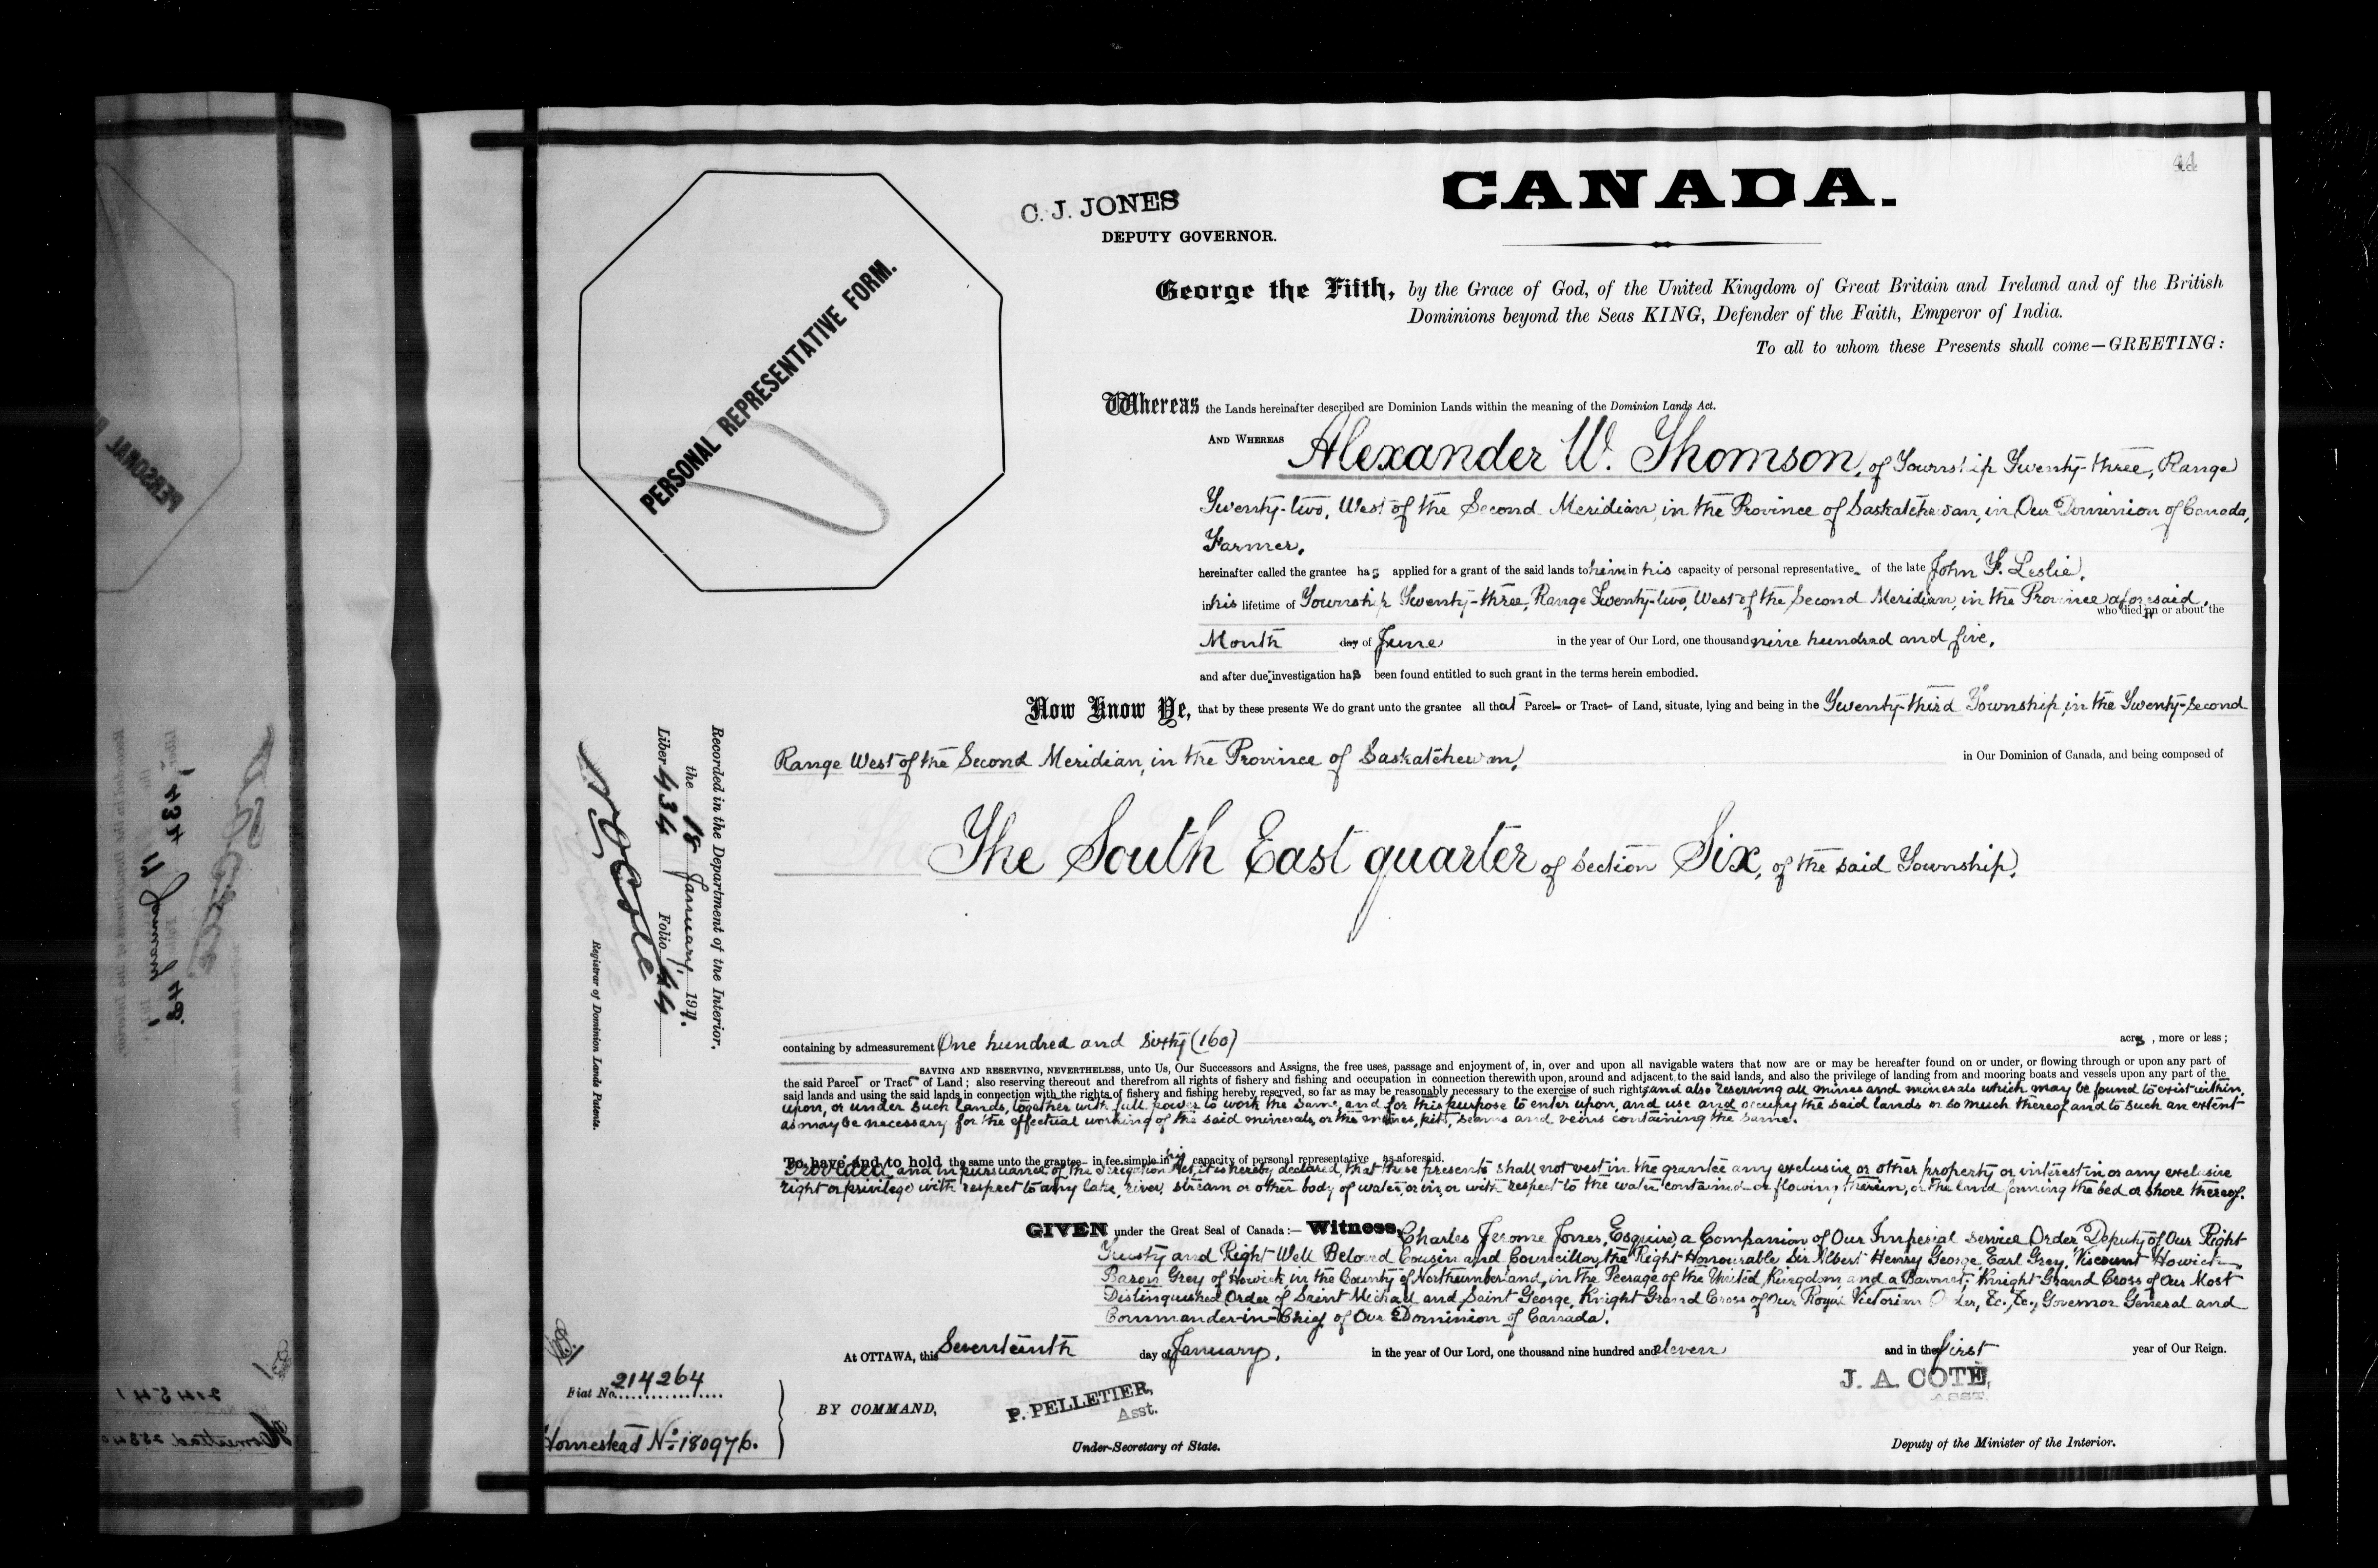 44
CANADA.
C. J. JONES
DEPUTY GOVERNOR.
PERSONAL REPRESENTATIVE FORM.
George the Fifth, by the Grace of God, of the United Kingdom of Great Britain and Ireland and of the British
Dominions beyond the Seas KING, Defender of the Faith, Emperor of India.
To all to whom these Presents shall come—GREETING:
Whereas the Lands hereinafter described are Dominion Lands within the meaning of the Dominion Lands Act.
AND WHEREAS Alexander W. Thomson, of Township Twenty-three, Range
Twenty-two, West of the Second Meridian, in the Province of Saskatchewan, in Our Dominion of Canada,
Farmer,
hereinafter called the grantee has applied for a grant of the said lands to him in his capacity of personal representative of the late John F. Leslie,
in his lifetime of Township Twenty-three, Range Twenty-two, West of the Second Meridian, in the Province aforesaid,
who died in or about the
Month day of June in the year of Our Lord, one thousand nine hundred and five,
and after due investigation has been found entitled to such grant in the terms herein embodied.
Now Know Ye, that by these presents We do grant unto the grantee all that Parcel or Tract of Land, situate, lying and being in the Twenty-third Township, in the Twenty-second
Range West of the Second Meridian, in the Province of Saskatchewan, in Our Dominion of Canada, and being composed of
The South East quarter of Section Six, of the said Township,
containing by admeasurement One hundred and sixty (160) acres, more or less;
SAVING AND RESERVING, NEVERTHELESS, unto Us, Our Successors and Assigns, the free uses, passage and enjoyment of, in, over and upon all navigable waters that now are or may be hereafter found on or under, or flowing through or upon any part of
the said Parcel or Tract of Land; also reserving thereout and therefrom all rights of fishery and fishing and occupation in connection therewith upon, around and adjacent to the said lands, and also the privilege of landing from and mooring boats and vessels upon any part of the
said lands and using the said lands in connection with the rights of fishery and fishing hereby reserved, so far as may be reasonably necessary to the exercise of such rights, and also reserving all mines and minerals which may be found to exist within,
upon, or under such lands, together with full power to work the same, and for this purpose to enter upon, and use and occupy the said lands or so much thereof and to such an extent
as may be necessary for the effectual working of the said minerals, or the mines, pits, seams and veins containing the same.
To have and to hold the same unto the grantee in fee simple in his capacity of personal representative as aforesaid.
Provided, and in pursuance of the Irrigation Act, it is hereby declared, that these presents shall not vest in the grantee any exclusive or other property or interest in or any exclusive
right or privilege with respect to any lake, river, stream or other body of water, or in, or with respect to the water contained or flowing therein, or the land forming the bed or shore thereof.
GIVEN under the Great Seal of Canada:— Witness, Charles Jerome Jones, Esquire, a Companion of Our Imperial Service Order, Deputy of Our Right
Trusty and Right Well Beloved Cousin and Councillor, the Right Honourable Sir Albert Henry George, Earl Grey, Viscount Howick,
Baron Grey of Howick, in the County of Northumberland, in the Peerage of the United Kingdom, and a Baronet; Knight Grand Cross of Our Most
Distinguished Order of Saint Michael and Saint George, Knight Grand Cross of Our Royal Victorian Order, &c., &c., Governor General and
Commander-in-Chief of Our Dominion of Canada.
At OTTAWA, this Seventeenth day of January, in the year of Our Lord, one thousand nine hundred and eleven and in the first year of Our Reign.
BY COMMAND,
P. PELLETIER,
Asst.
Under-Secretary of State.
J. A. COTÉ,
ASST.
Deputy of the Minister of the Interior.
Recorded in the Department of the Interior,
the 18 January, 1911.
Liber 434 Folio 44
Registrar of Dominion Lands Patents.
Fiat No. 214264
Homestead No. 180976.